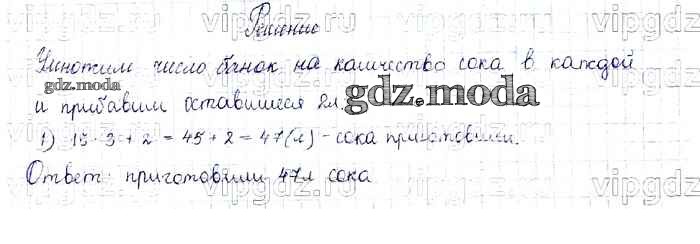 Решение
Умножим число банок на количество сока в каждой
и прибавим оставшиеся 2л.
1) 15·3+2=45+2=47(л)-сока приготовили.
Ответ: приготовили 47л сока
gdz.moda
gdz.moda
vipgdz.ru
vipgdz.ru
vipgdz
vipgdz.ru
vipgdz.ru
vipgdz